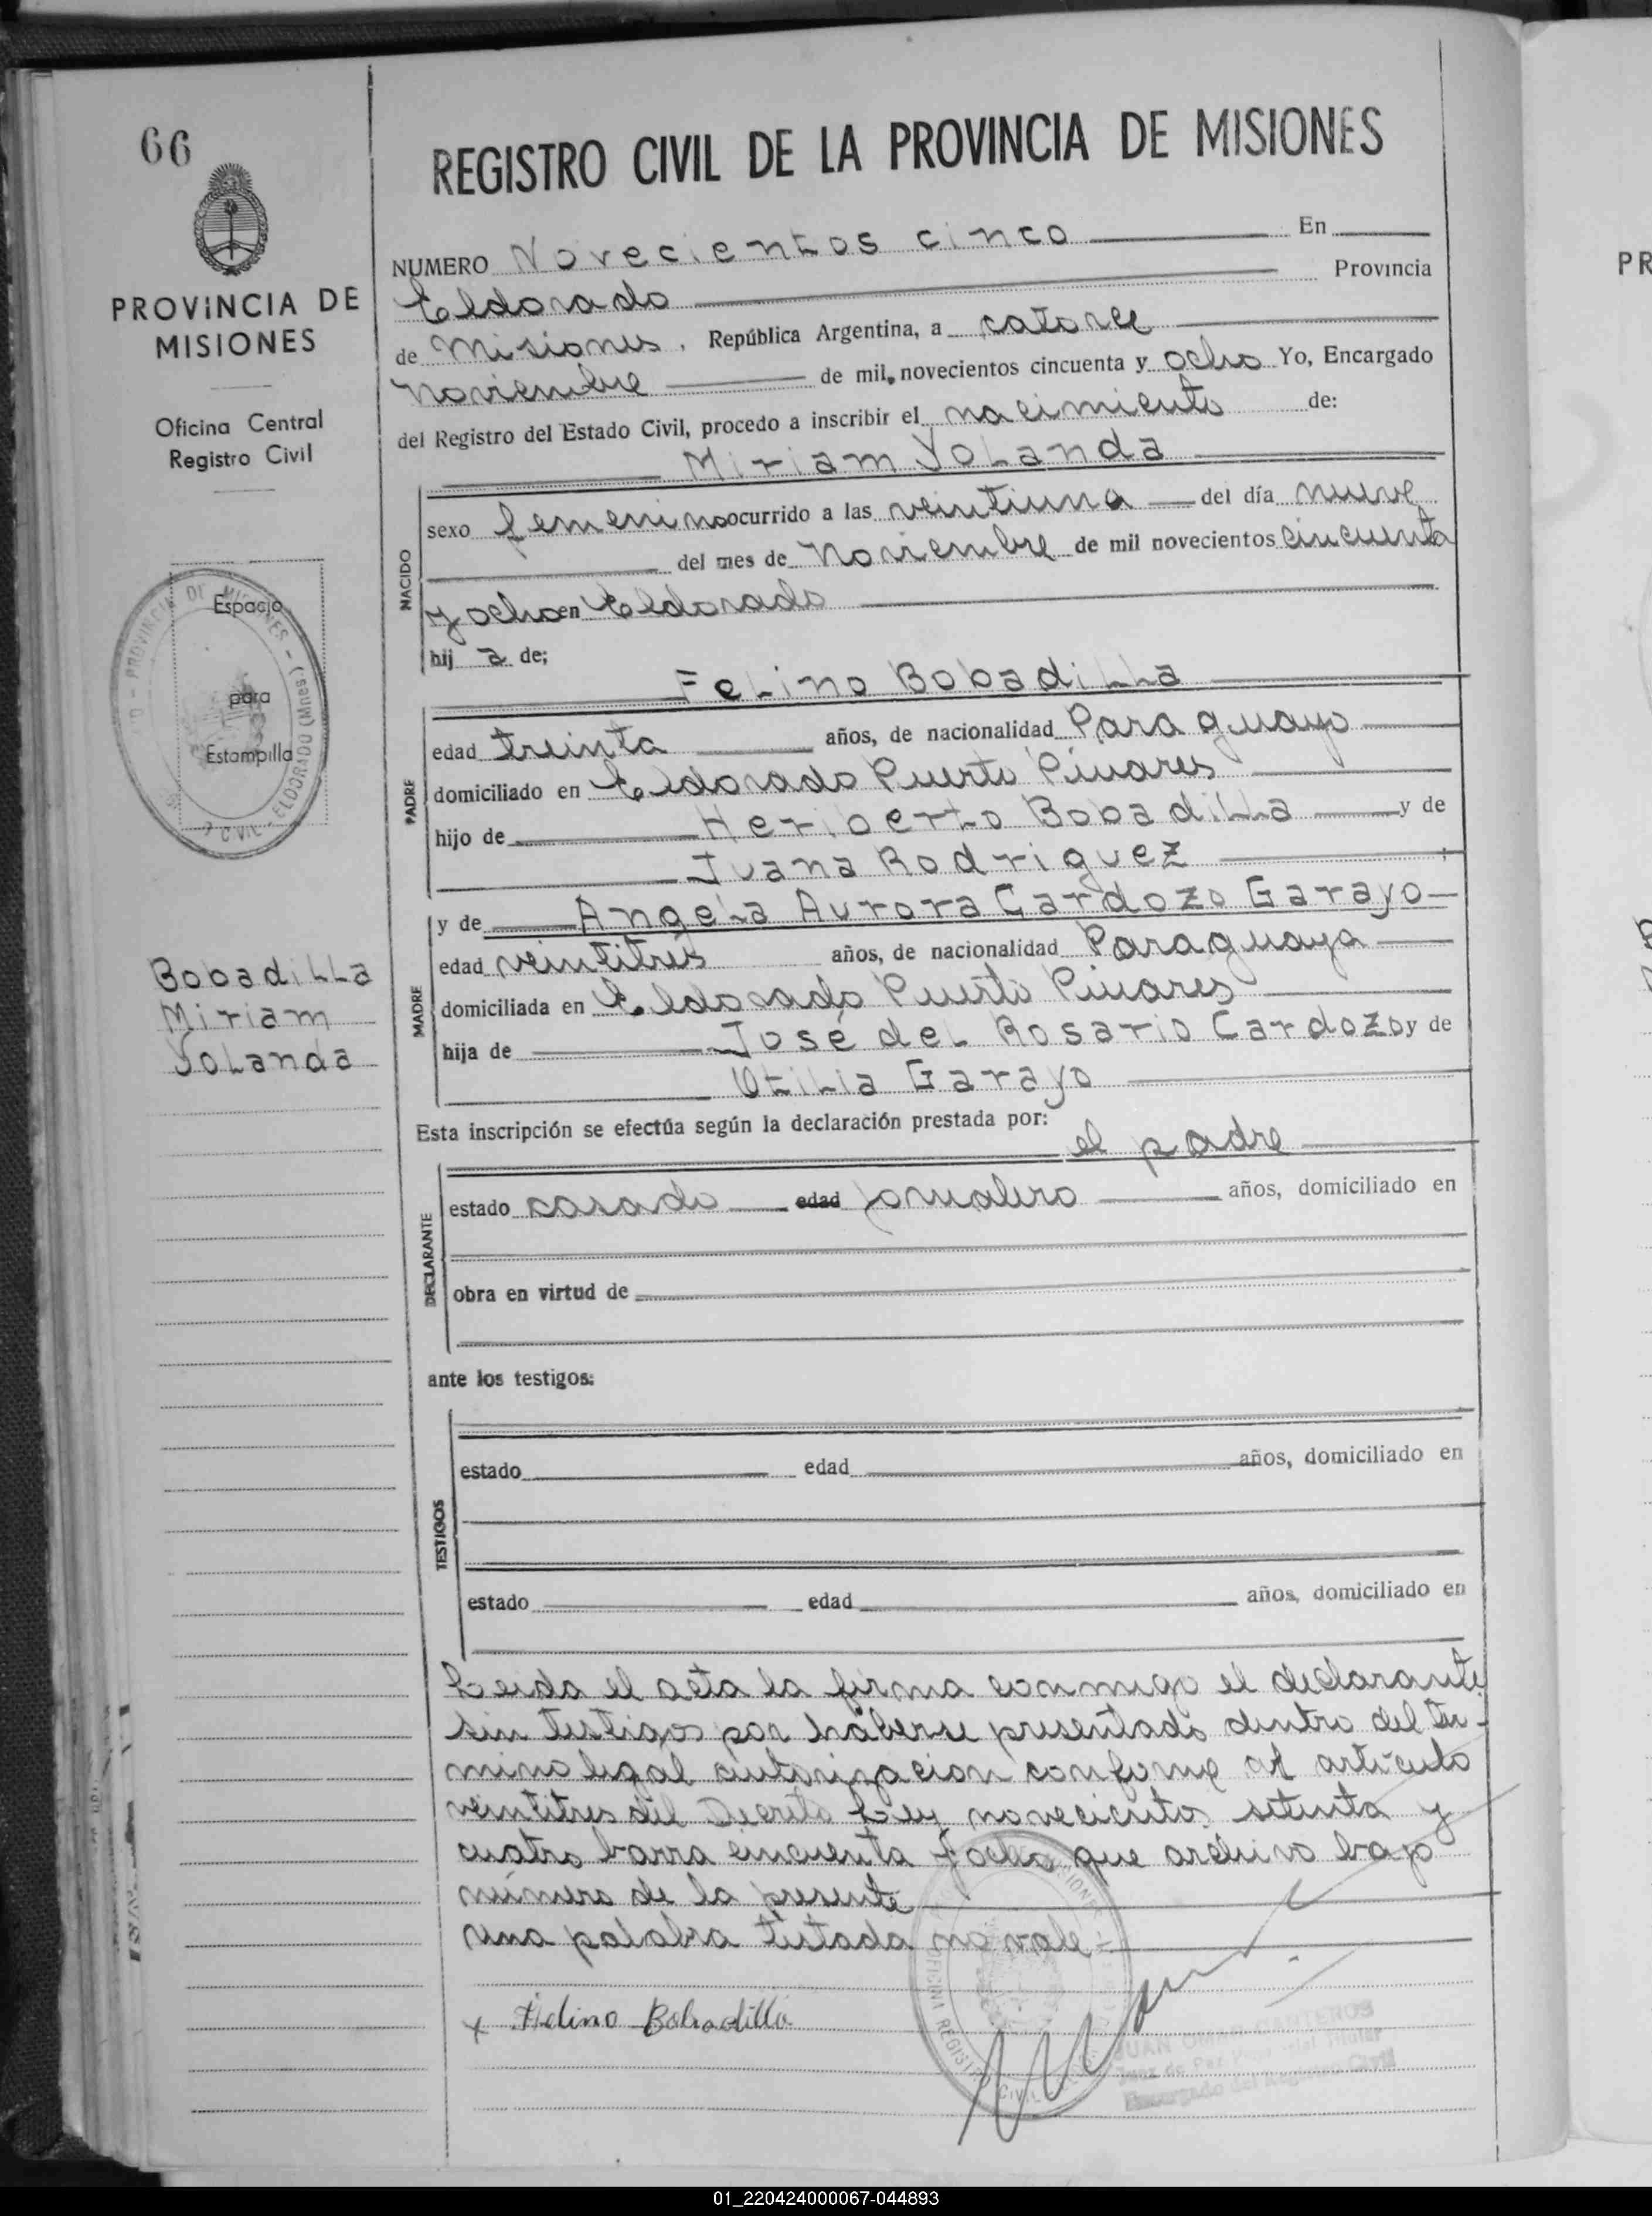 66
PROVINCIA DE
MISIONES
Oficina Central
Registro Civil
Espacio
para
Estampilla
PROVINCIA DE MISIONES - ELDORADO (Mnes.)
CIVIL
Bobadilla
Miriam
Yolanda
REGISTRO CIVIL DE LA PROVINCIA DE MISIONES
NUMERO Novecientos cinco En
Eldorado Provincia
de Misiones, República Argentina, a catorce
Noviembre de mil novecientos cincuenta y ocho Yo, Encargado
del Registro del Estado Civil, procedo a inscribir el nacimiento de:
Miriam Yolanda
NACIDO
sexo femenino ocurrido a las veintiuna del día nueve
del mes de Noviembre de mil novecientos cincuenta
y ocho en Eldorado
hij a de;
Felino Bobadilla
PADRE
edad treinta años, de nacionalidad Paraguayo
domiciliado en Eldorado Puerto Pinares
hijo de Heriberto Bobadilla y de
Juana Rodriguez ;
MADRE
y de Angela Aurora Cardozo Garayo
edad veintitres años, de nacionalidad Paraguaya
domiciliada en Eldorado Puerto Pinares
hija de José del Rosario Cardozo y de
Otilia Garayo
Esta inscripción se efectúa según la declaración prestada por:
el padre
DECLARANTE
estado casado edad jornalero años, domiciliado en
obra en virtud de
ante los testigos:
TESTIGOS
estado edad años, domiciliado en
estado edad años, domiciliado en
Leida el acta la firma conmigo el declarante
sin testigos por háberse presentado dentro del tér-
mino legal autorizacion conforme al artículo
veintitres del Decreto Ley novecientos setenta y
cuatro barra cincuenta y ocho que archivo bajo
número de la presente
una palabra testada no vale
x Felino Bobadilla
OFICINA REGISTRO CIVIL
JUAN OMAR CANTEROS
Juez de Paz Titular
Encargado del Registro Civil
01_220424000067-044893